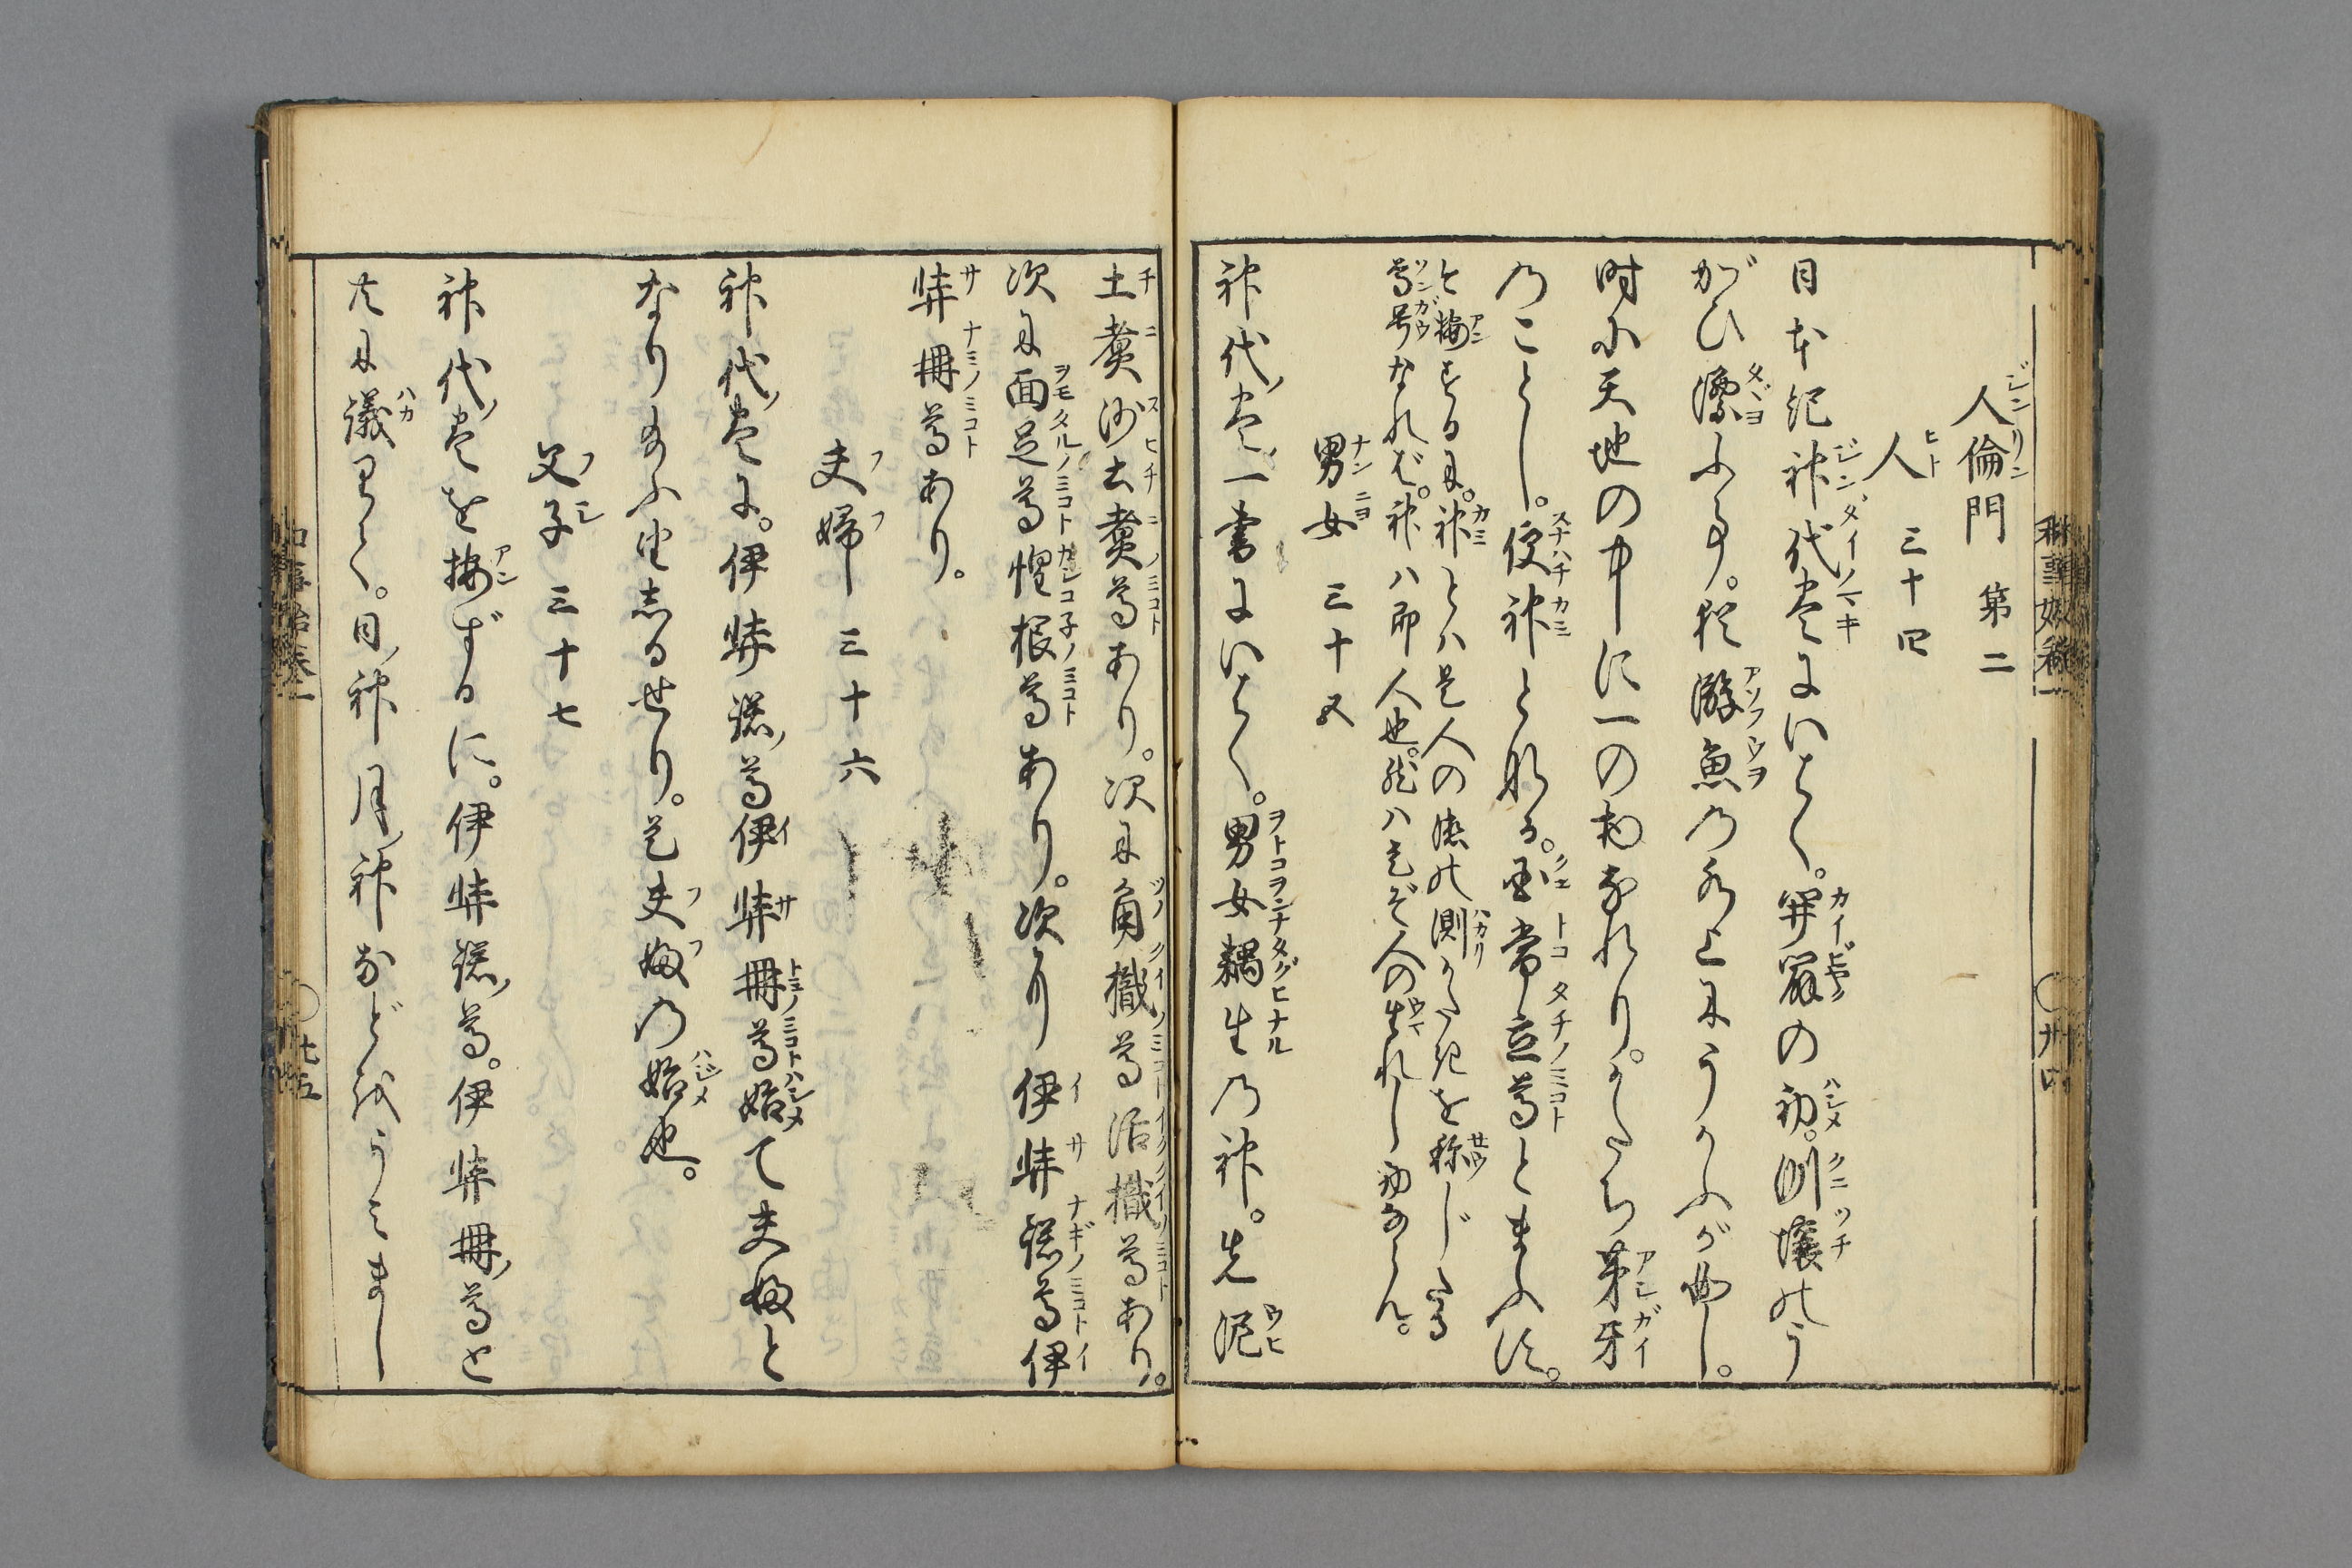 人倫門 第二
人 三十四
日本紀神代巻にいはく。開闢の初。洲壌のう
かび漂ふ事。猶游魚の水上にうかふが如し。
時に天地の中に一の物なれり。かたち葦牙
のことし。便神となる。国常立尊とまふす。
を按するに。神とは是人の徳の測かたきを称じたる
尊号なれば。神ハ即人也。然ハ是ぞ人の生れし初ならん。
男女 三十五
神代巻一書にいはく。男女耦生の神。先泥
土煑沙土煑尊あり。次に角樴尊活樴尊あり。
次に面足尊惶根尊あり。次に伊弉諾尊伊
弉冊尊あり。
夫婦 三十六
神代巻に。伊弉諾尊伊弉冊尊始て夫婦と
なり給ふ としるせり。是夫婦の始也。
父子 三十七
神代巻を按ずるに。伊弉諾尊。伊弉冊尊と
共に議りて。日神月神などをうみまし